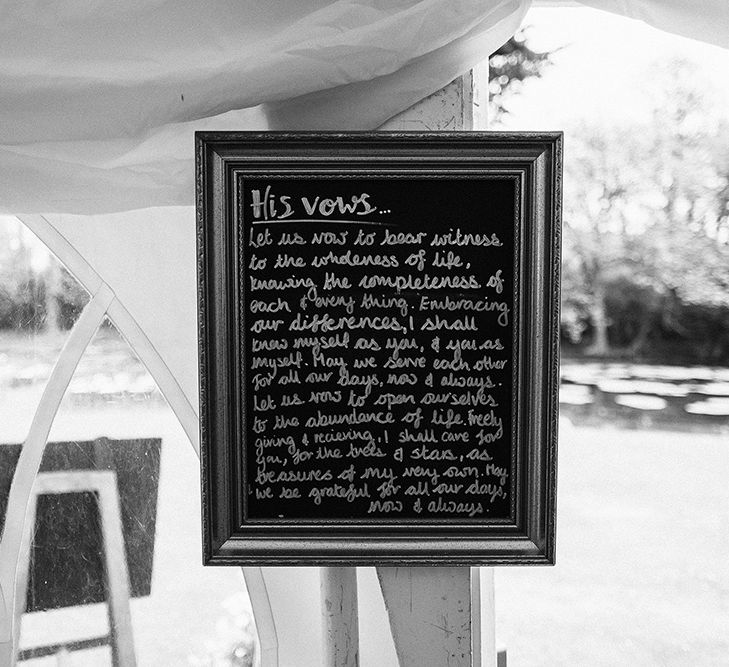 His vows...
Let us vow to bear witness
to the wholeness of life,
knowing the completeness of
each & every thing. Embracing
our differences, I shall
know myself as you, & you as
myself. May we serve each other
for all our days, now & always.
Let us vow to open ourselves
to the abundance of life. Freely
giving & recieving, I shall care for
you, for the trees & stars, as
treasures of my very own. May
we be grateful for all our days,
now & always.